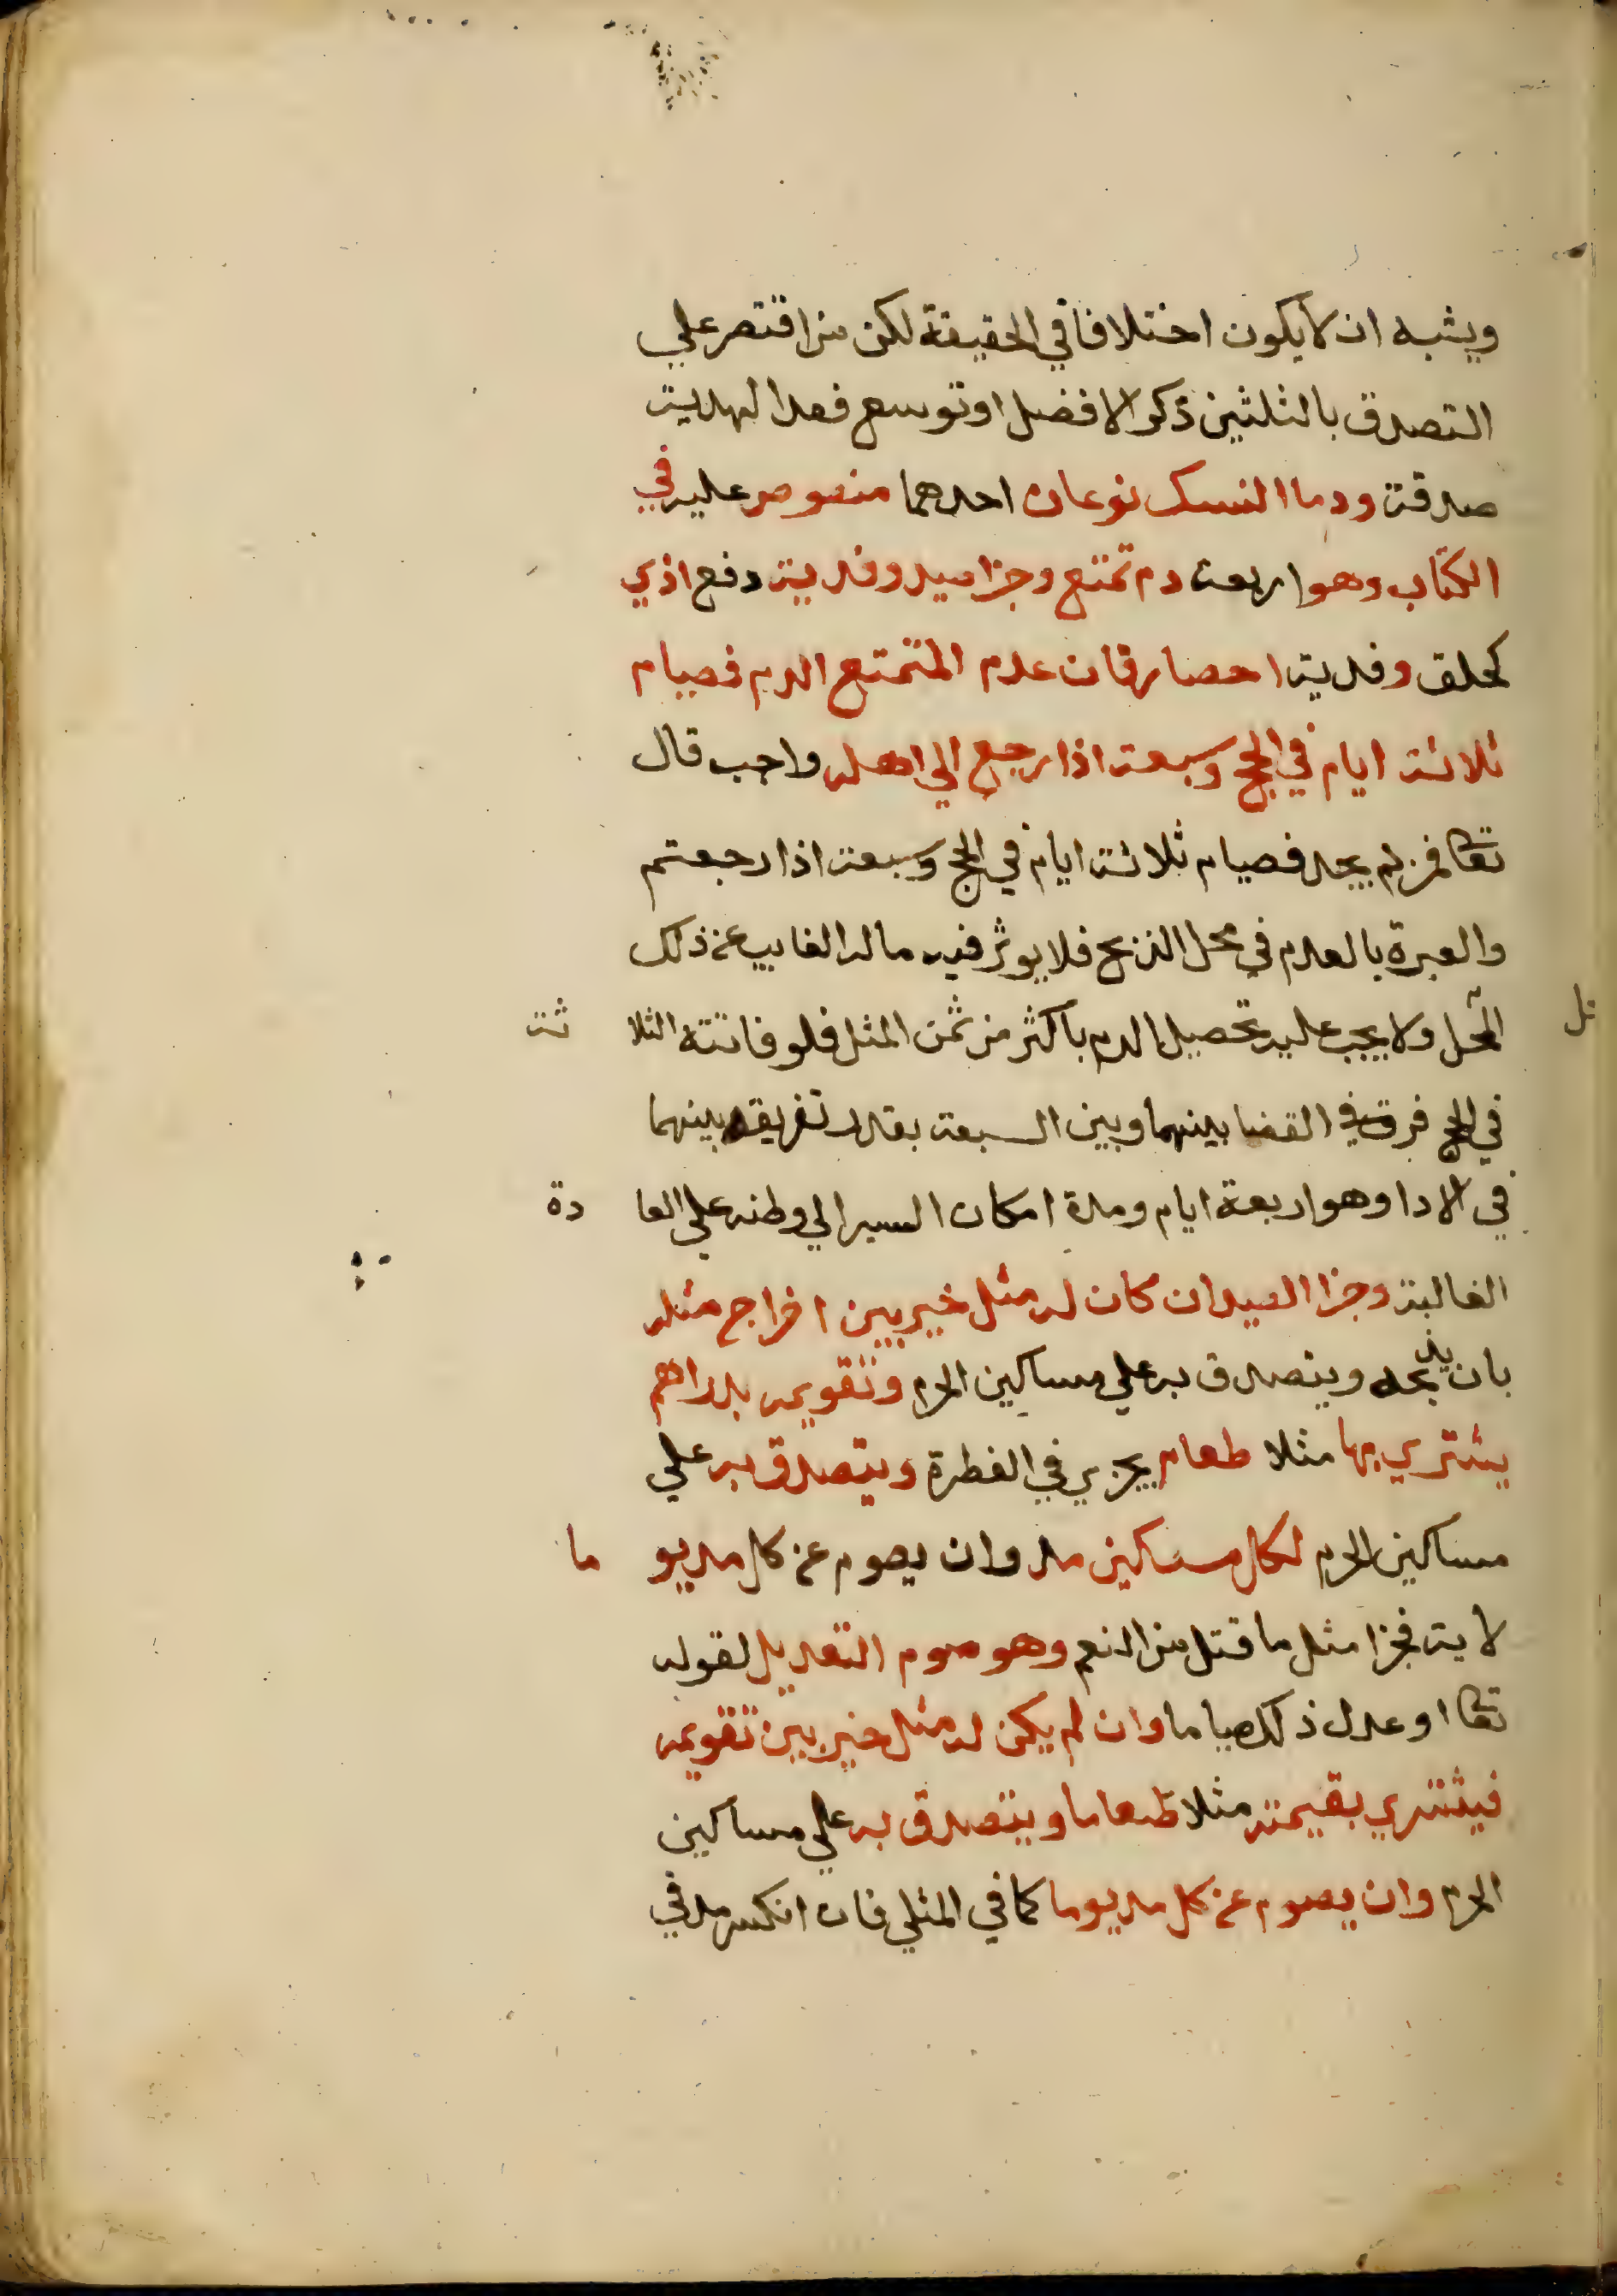 ويشبه ان لا يكون اختلافا في الحقيقة لكن من اقتصر علي
التصدق بالثلثين ذكر الافضل او توسع فعد الهدية
صدقة ودما النسك نوعان احدهما منصوص عليه في
الكتاب وهو اربعة دم تمتع وجزا صيد وفدية دفع اذي
كحلق وفدية احصار فان عدم المتمتع الدم فصيام
ثلاثة ايام في الحج وسبعة اذا رجع الي اهله واجب قال
تعا فمن لم يجد فصيام ثلاثة ايام في الحج وسبعة اذا رجعتم
والعبرة بالعدم في محل الذبح فلا يوثر فيه ماله الغايب عن ذلك
المحل ولا يجب عليه تحصيل الدم باكثر من ثمن المثل فلو فاتته الثلاثة
في الحج فرق في القضا بينهما وبين السبعة بقدر تفريقه بينهما
في الادا وهو اربعة ايام ومدة امكان السير الي وطنه علي العادة
الغالبة وجزا الصيد ان كان له مثل خير بين اخراج مثله
بان يذبحه ويتصدق به علي مساكين الحرم وتقويمه بدراهم
يشتري بها مثلا طعام يجزي في الفطرة ويتصدق به علي
مساكين الحرم لكل مسكين مد وان يصوم عن كل مد يوما
لاية فجزا مثل ما قتل من النعم وهو صوم التعديل لقوله
تعا او عدل ذلك صياما وان لم يكن له مثل خير بين تقويمه
فيشتري بقيمته مثلا طعاما ويتصدق به علي مساكين
الحرم وان يصوم عن كل مد يوما كما في المثلي فان انكسر مد في